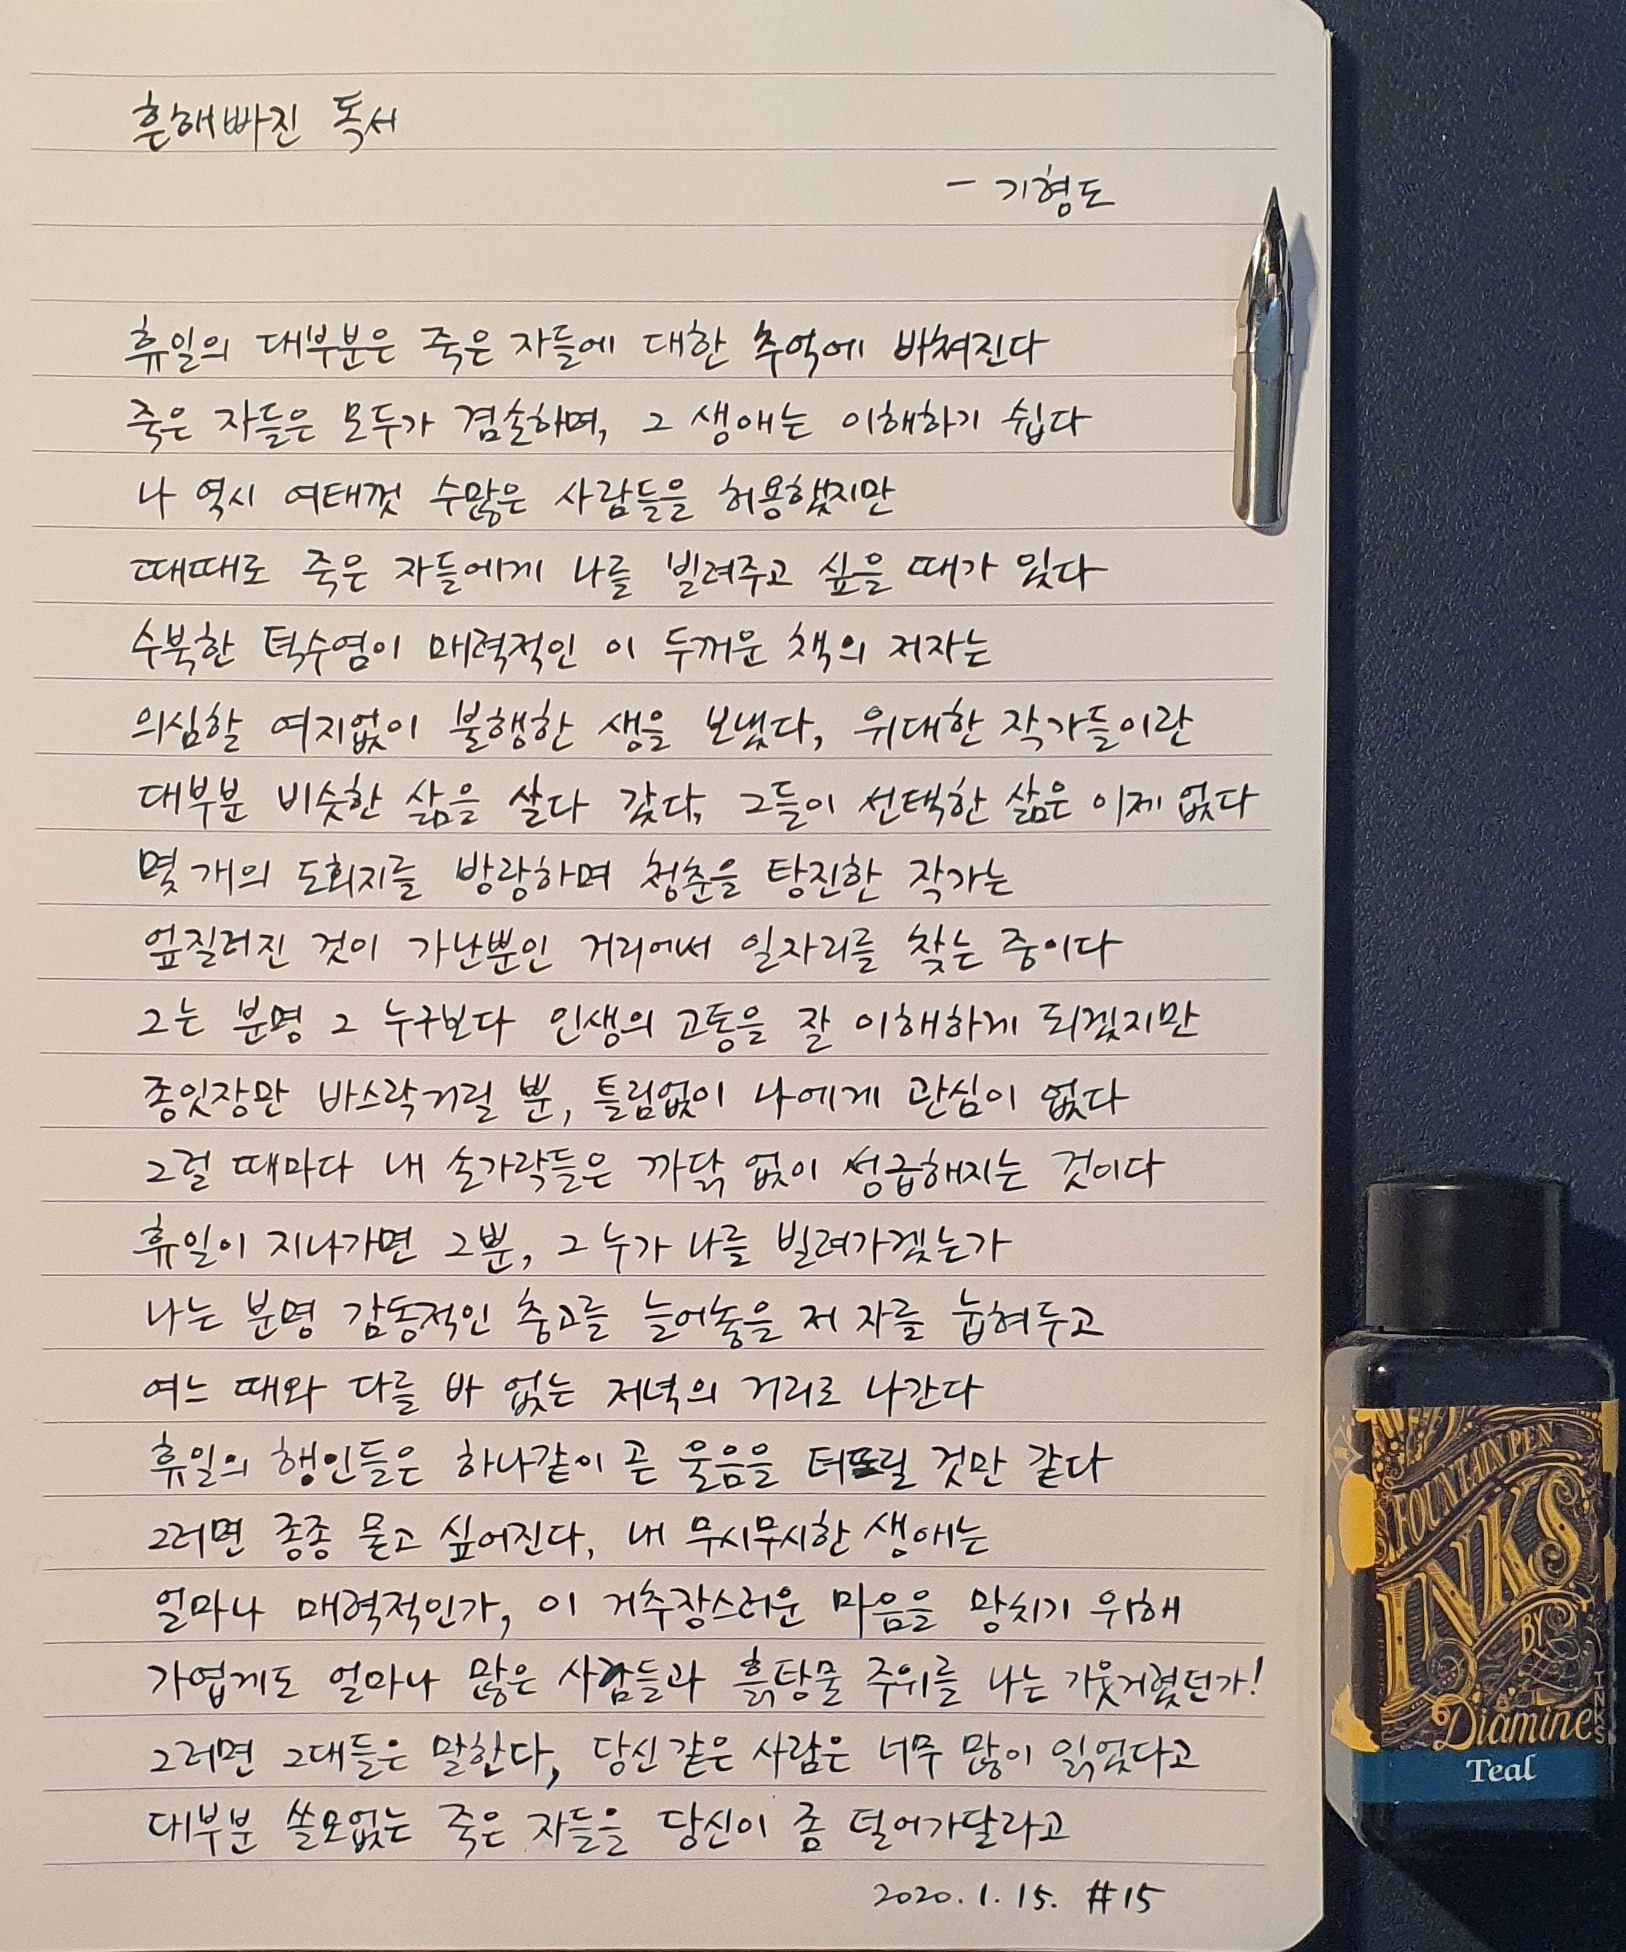 흔해빠진 독서
- 기형도
휴일의 대부분은 죽은 자들에 대한 추억에 바쳐진다
죽은 자들은 모두가 겸손하며, 그 생애는 이해하기 쉽다
나 역시 여태껏 수많은 사람들을 허용했지만
때때로 죽은 자들에게 나를 빌려주고 싶을 때가 있다
수북한 턱수염이 매력적인 이 두꺼운 책의 저자는
의심할 여지없이 불행한 생을 보냈다, 위대한 작가들이란
대부분 비슷한 삶을 살다 갔다, 그들이 선택한 삶은 이제 없다
몇 개의 도회지를 방랑하며 청춘을 탕진한 작가는
엎질러진 것이 가난뿐인 거리에서 일자리를 찾는 중이다
그는 분명 그 누구보다 인생의 고통을 잘 이해하게 되겠지만
종잇장만 바스락거릴 뿐, 틀림없이 나에게 관심이 없다
그럴 때마다 내 손가락들은 까닭 없이 성급해지는 것이다
휴일이 지나가면 그뿐, 그 누가 나를 빌려가겠는가
나는 분명 감동적인 충고를 늘어놓을 저 자를 눕혀두고
여느 때와 다를 바 없는 저녁의 거리로 나간다
휴일의 행인들은 하나같이 곧 울음을 터뜨릴 것만 같다
그러면 종종 묻고 싶어진다, 내 무시무시한 생애는
얼마나 매력적인가, 이 거추장스러운 마음을 망치기 위해
가엽게도 얼마나 많은 사람들과 흙탕물 주위를 나는 기웃거렸던가!
그러면 그대들은 말한다, 당신 같은 사람은 너무 많이 읽었다고
대부분 쓸모없는 죽은 자들을 당신이 좀 덜어가달라고
2020. 1. 15. #15
FOUNTAIN PEN
INKS
BY
Diamine
Teal
INKS